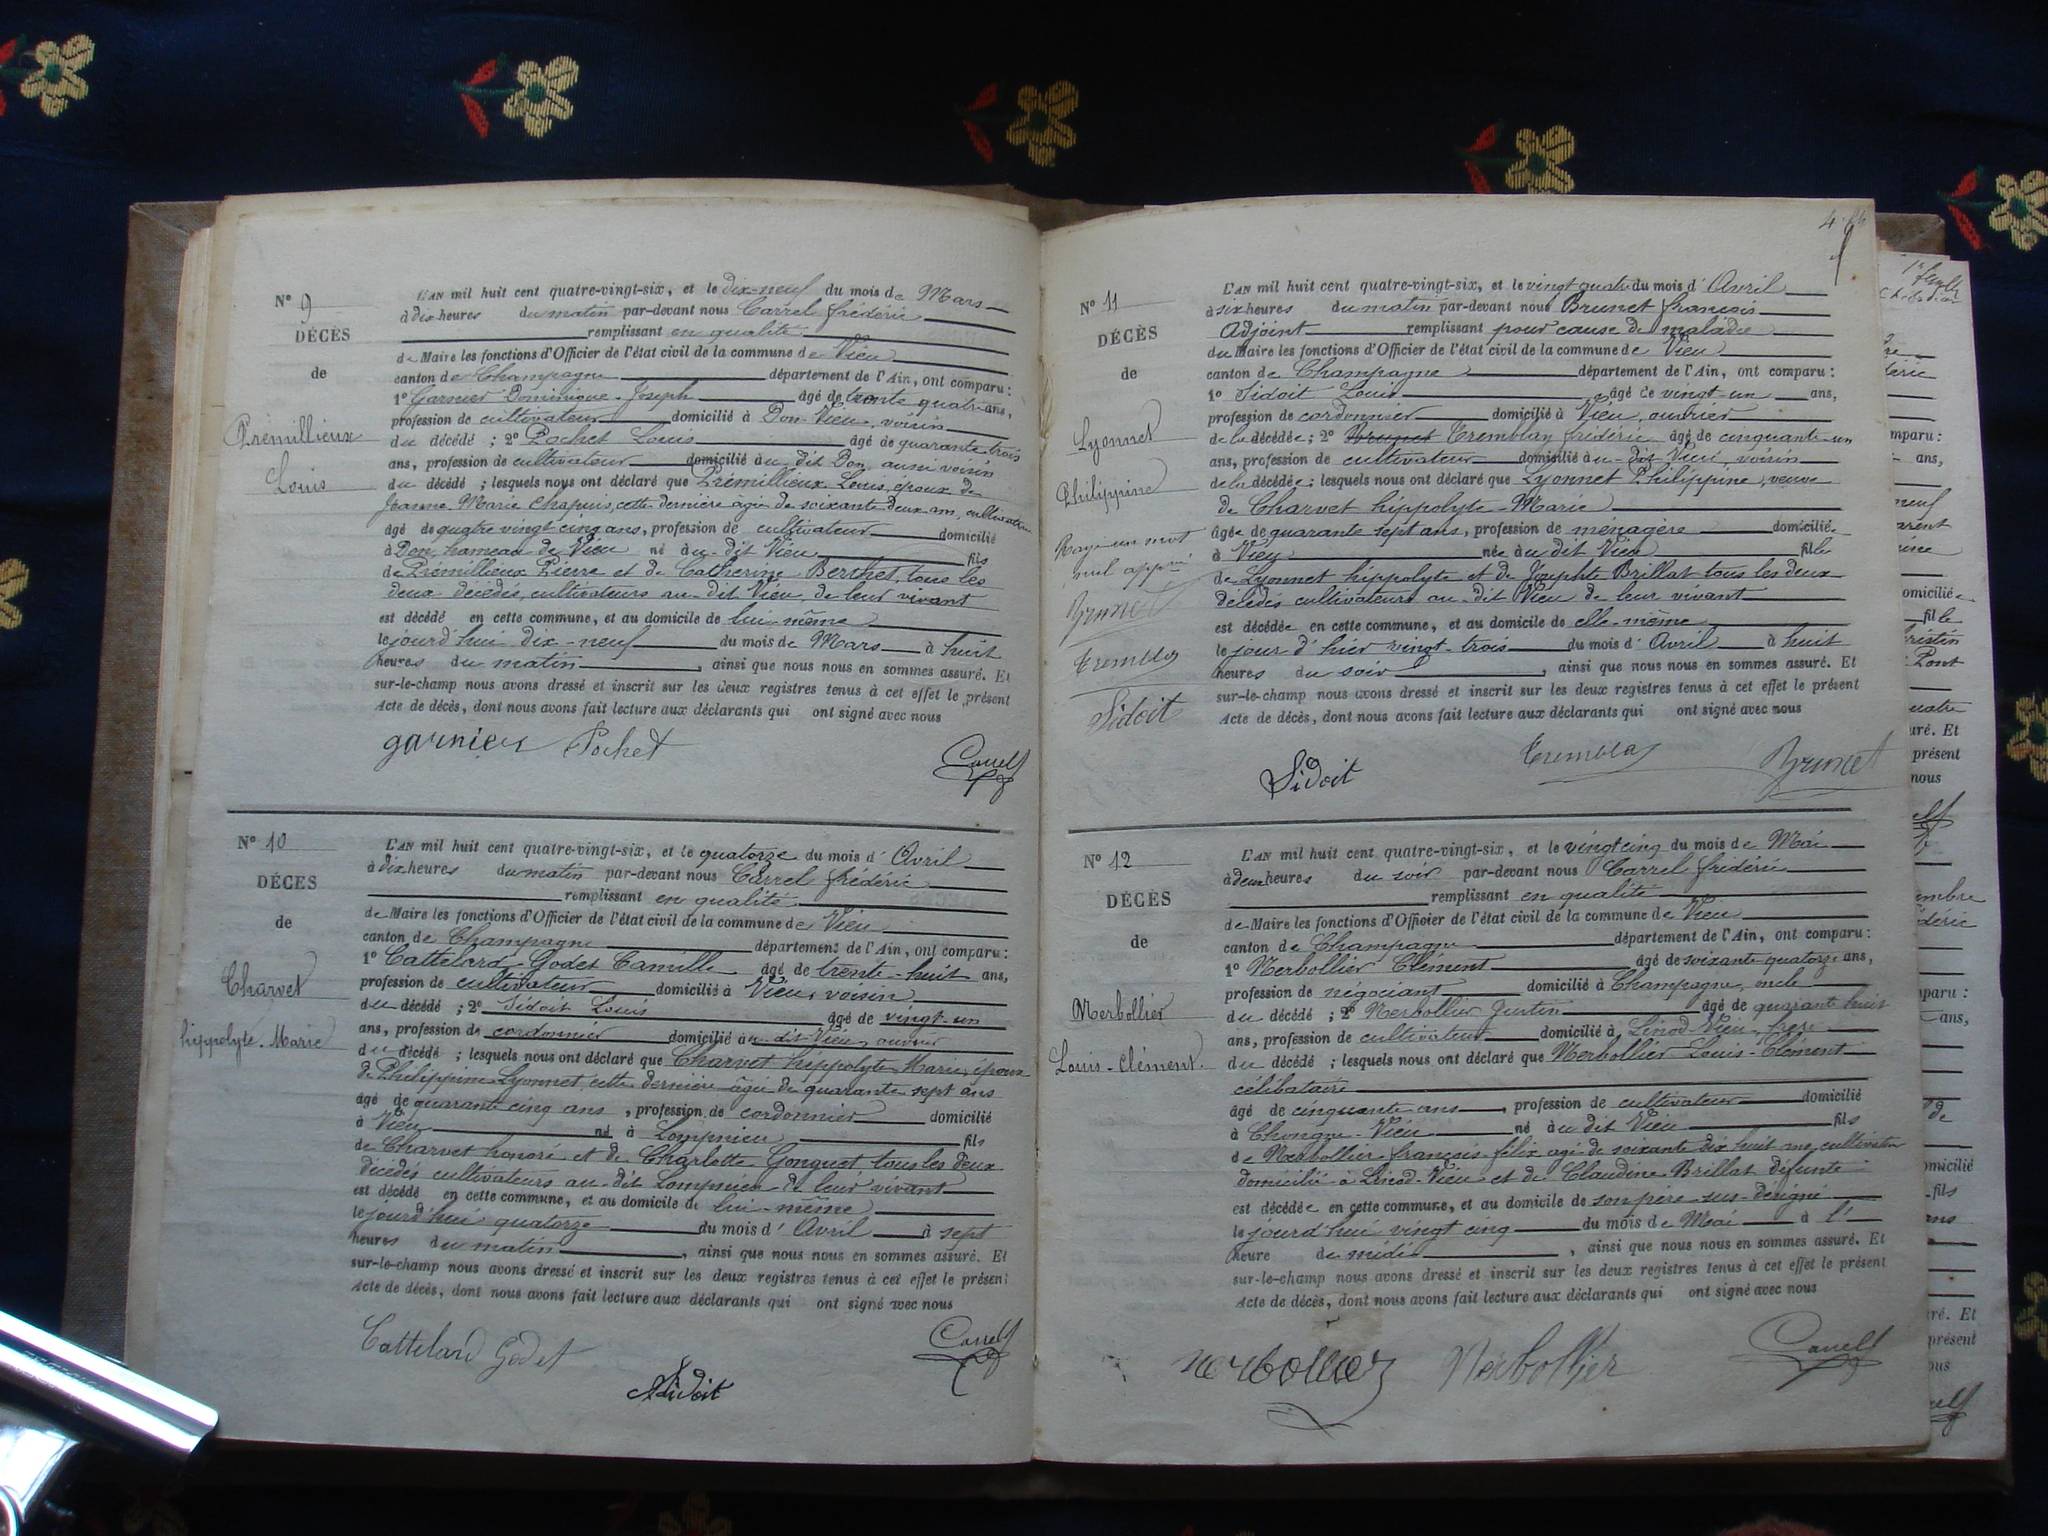 N° 9
DÉCÈS
de
Prémillieux
Louis
L'AN mil huit cent quatre-vingt-six, et le dix-neuf du mois de Mars
à dix heures du matin par-devant nous Carrel frédéric
remplissant en qualité
de Maire les fonctions d'Officier de l'état civil de la commune de Vieu
canton de Champagne département de l'Ain, ont comparu :
1° Garnier Dominique Joseph âgé de trente quatre ans,
profession de cultivateur domicilié à Don-Vieu, voisin
du décédé ; 2° Pochet Louis âgé de quarante trois
ans, profession de cultivateur domicilié au dit Don, aussi voisin
du décédé ; lesquels nous ont déclaré que Prémillieux Louis, époux de
Jeanne Marie Chapuis, cette dernière âgée de soixante deux ans, cultivatrice
âgé de quatre vingt cinq ans, profession de cultivateur domicilié
à Don, hameau de Vieu né au dit Vieu fils
de Prémillieux Pierre et de Catherine Berthet, tous les
deux décédés, cultivateurs au-dit Vieu, de leur vivant
est décédé en cette commune, et au domicile de lui-même
le jourd'hui dix-neuf du mois de Mars à huit
heures du matin, ainsi que nous nous en sommes assuré. Et
sur-le-champ nous avons dressé et inscrit sur les deux registres tenus à cet effet le présent
Acte de décès, dont nous avons fait lecture aux déclarants qui ont signé avec nous
garnier Pochet
Carrel
N° 10
DÉCÈS
de
Charvet
hippolyte. Marie
L'AN mil huit cent quatre-vingt-six, et le quatorze du mois d'Avril
à dix heures du matin par-devant nous Carrel frédéric
remplissant en qualité
de Maire les fonctions d'Officier de l'état civil de la commune de Vieu
canton de Champagne département de l'Ain, ont comparu :
1° Cattelard-Godet Camille âgé de trente-huit ans,
profession de cultivateur domicilié à Vieu, voisin
du décédé ; 2° Sidoit Louis âgé de vingt-un
ans, profession de cordonnier domicilié au-dit-Vieu, ouvrier
du décédé ; lesquels nous ont déclaré que Charvet hippolyte Marie, époux
de Philippine Lyonnet, cette dernière âgée de quarante sept ans
âgé de quarante cinq ans, profession de cordonnier domicilié
à Vieu né à Lompnieu fils
de Charvet honoré et de Charlotte Gonguet tous les deux
décédés cultivateurs au-dit Lompnieu de leur vivant
est décédé en cette commune, et au domicile de lui-même
le jourd'hui quatorze du mois d'Avril à sept
heures du matin, ainsi que nous nous en sommes assuré. Et
sur-le-champ nous avons dressé et inscrit sur les deux registres tenus à cet effet le présent
Acte de décès, dont nous avons fait lecture aux déclarants qui ont signé avec nous
Cattelard Godet
Sidoit
Carrel
N° 11
DÉCÈS
de
Lyonnet
Philippine
Rayé un mot
nul approuvé
Brunet
Tremblay
Sidoit
L'AN mil huit cent quatre-vingt-six, et le vingt quatre du mois d'Avril
à six heures du matin par-devant nous Brunet françois
Adjoint remplissant pour cause de maladie
du Maire les fonctions d'Officier de l'état civil de la commune de Vieu
canton de Champagne département de l'Ain, ont comparu :
1° Sidoit Louis âgé de vingt-un ans,
profession de cordonnier domicilié à Vieu, ouvrier
de la décédée ; 2° Brunet Tremblay frédéric âgé de cinquante-un
ans, profession de cultivateur domicilié au-dit Vieu, voisin
de la décédée ; lesquels nous ont déclaré que Lyonnet Philippine, veuve
de Charvet hippolyte-Marie
âgée de quarante sept ans, profession de ménagère domiciliée
à Vieu née au dit Vieu fille
de Lyonnet hippolyte et de Josephte Brillat tous les deux
décédés cultivateurs au-dit Vieu de leur vivant
est décédée en cette commune, et au domicile de elle-même
le jour d'hier vingt-trois du mois d'Avril à huit
heures du soir, ainsi que nous nous en sommes assuré. Et
sur-le-champ nous avons dressé et inscrit sur les deux registres tenus à cet effet le présent
Acte de décès, dont nous avons fait lecture aux déclarants qui ont signé avec nous
Sidoit
Tremblay
Brunet
N° 12
DÉCÈS
de
Merbollier
Louis-Clément.
L'AN mil huit cent quatre-vingt-six, et le vingt cinq du mois de Mai
à deux heures du soir par-devant nous Carrel frédéric
remplissant en qualité
de Maire les fonctions d'Officier de l'état civil de la commune de Vieu
canton de Champagne département de l'Ain, ont comparu :
1° Merbollier Clément âgé de soixante quatorze ans,
profession de négociant domicilié à Champagne, oncle
du décédé ; 2° Merbollier Justin âgé de quarante huit
ans, profession de cultivateur domicilié à Linod-Vieu, frère
du décédé ; lesquels nous ont déclaré que Merbollier Louis-Clément
célibataire
âgé de cinquante ans, profession de cultivateur domicilié
à Chongne-Vieu né au dit Vieu fils
de Merbollier françois félix agé de soixante dix huit ans, cultivateur
domicilié à Linod-Vieu et de Claudine Brillat défunte
est décédée en cette commune, et au domicile de son père sus-désigné
le jourd'hui vingt cinq du mois de Mai à l'
heure de midi, ainsi que nous nous en sommes assuré. Et
sur-le-champ nous avons dressé et inscrit sur les deux registres tenus à cet effet le présent
Acte de décès, dont nous avons fait lecture aux déclarants qui ont signé avec nous
merbollier Merbollier
Carrel